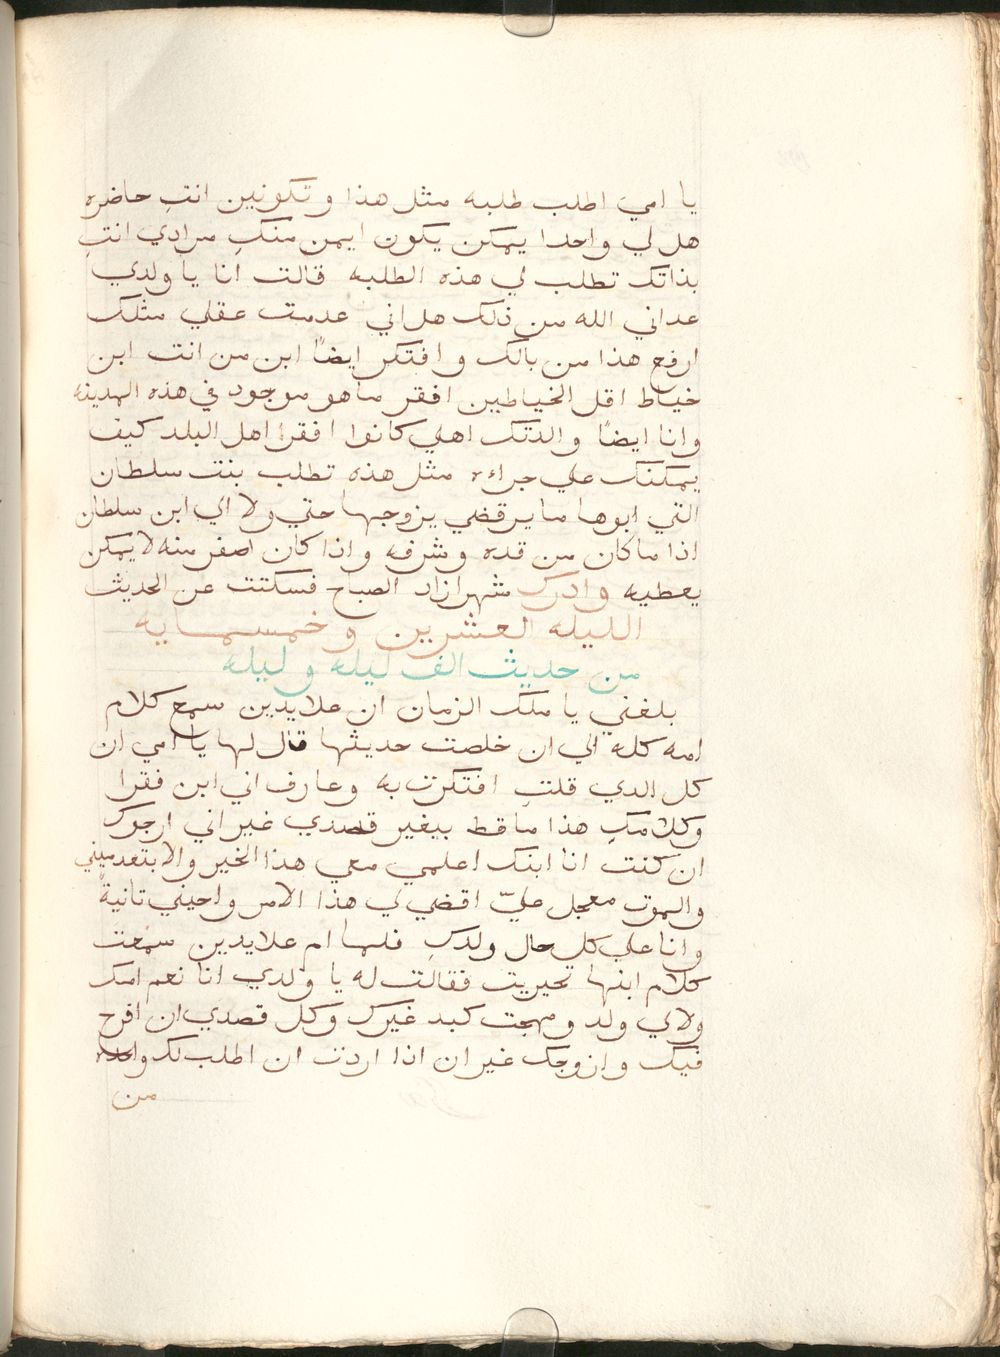 يا امي اطلب طلبه مثل هذا وتكونين انتِ حاضره
هل لي واحدا يمكن يكون ايمن منكِ مرادي انتِ
بذاتك تطلب لي هذه الطلبه قالت انا يا ولدي
عداني الله من ذلك هل اني عدمت عقلي مثلك
ارفع هذا من بالك وافتكر ايضاً ابن من انت ابن
خياط اقل الخياطين افقر ما هو موجود في هذه المدينه
وانا ايضاً والدتك اهلي كانوا افقرا اهل البلد كيف
يمكنك علي جراءه مثل هذه تطلب بنت سلطان
التي ابوها ما يرقضي يزوجها حتي ولا الي ابن سلطان
اذا ما كان من قده وشرفه واذا كان اصغر منه لا يمكن
يعطيه وادرك شهرازاد الصباح فسكتت عن الحديث
الليله العشرين وخمسمايه
من حديث الف ليله وليله
بلغني يا ملك الزمان ان علايدين سمع كلام
امه كله الي ان خلصت حديثها قال لها يا امي ان
كل الدي قلتِ افتكرت به وعارف اني ابن فقرا
وكلامكِ هذا ما قط بيغير قصدي غير اني ارجوكِ
ان كنت انا ابنك اعلمي معي هذا الخير والا بتعدميني
والموت معجل عليّ اقضي لي هذا الامر واحيني تانيةً
وانا علي كل حال ولدكِ فلما ام علايدين سمعت
كلام ابنها تحيريت فقالت له يا ولدي انا نعم امك
ولا لي ولد ومهجت كبد غيرك وكل قصدي ان افرح
فيك وازوجك غير ان اذا اردت ان اطلب لك واحده
من